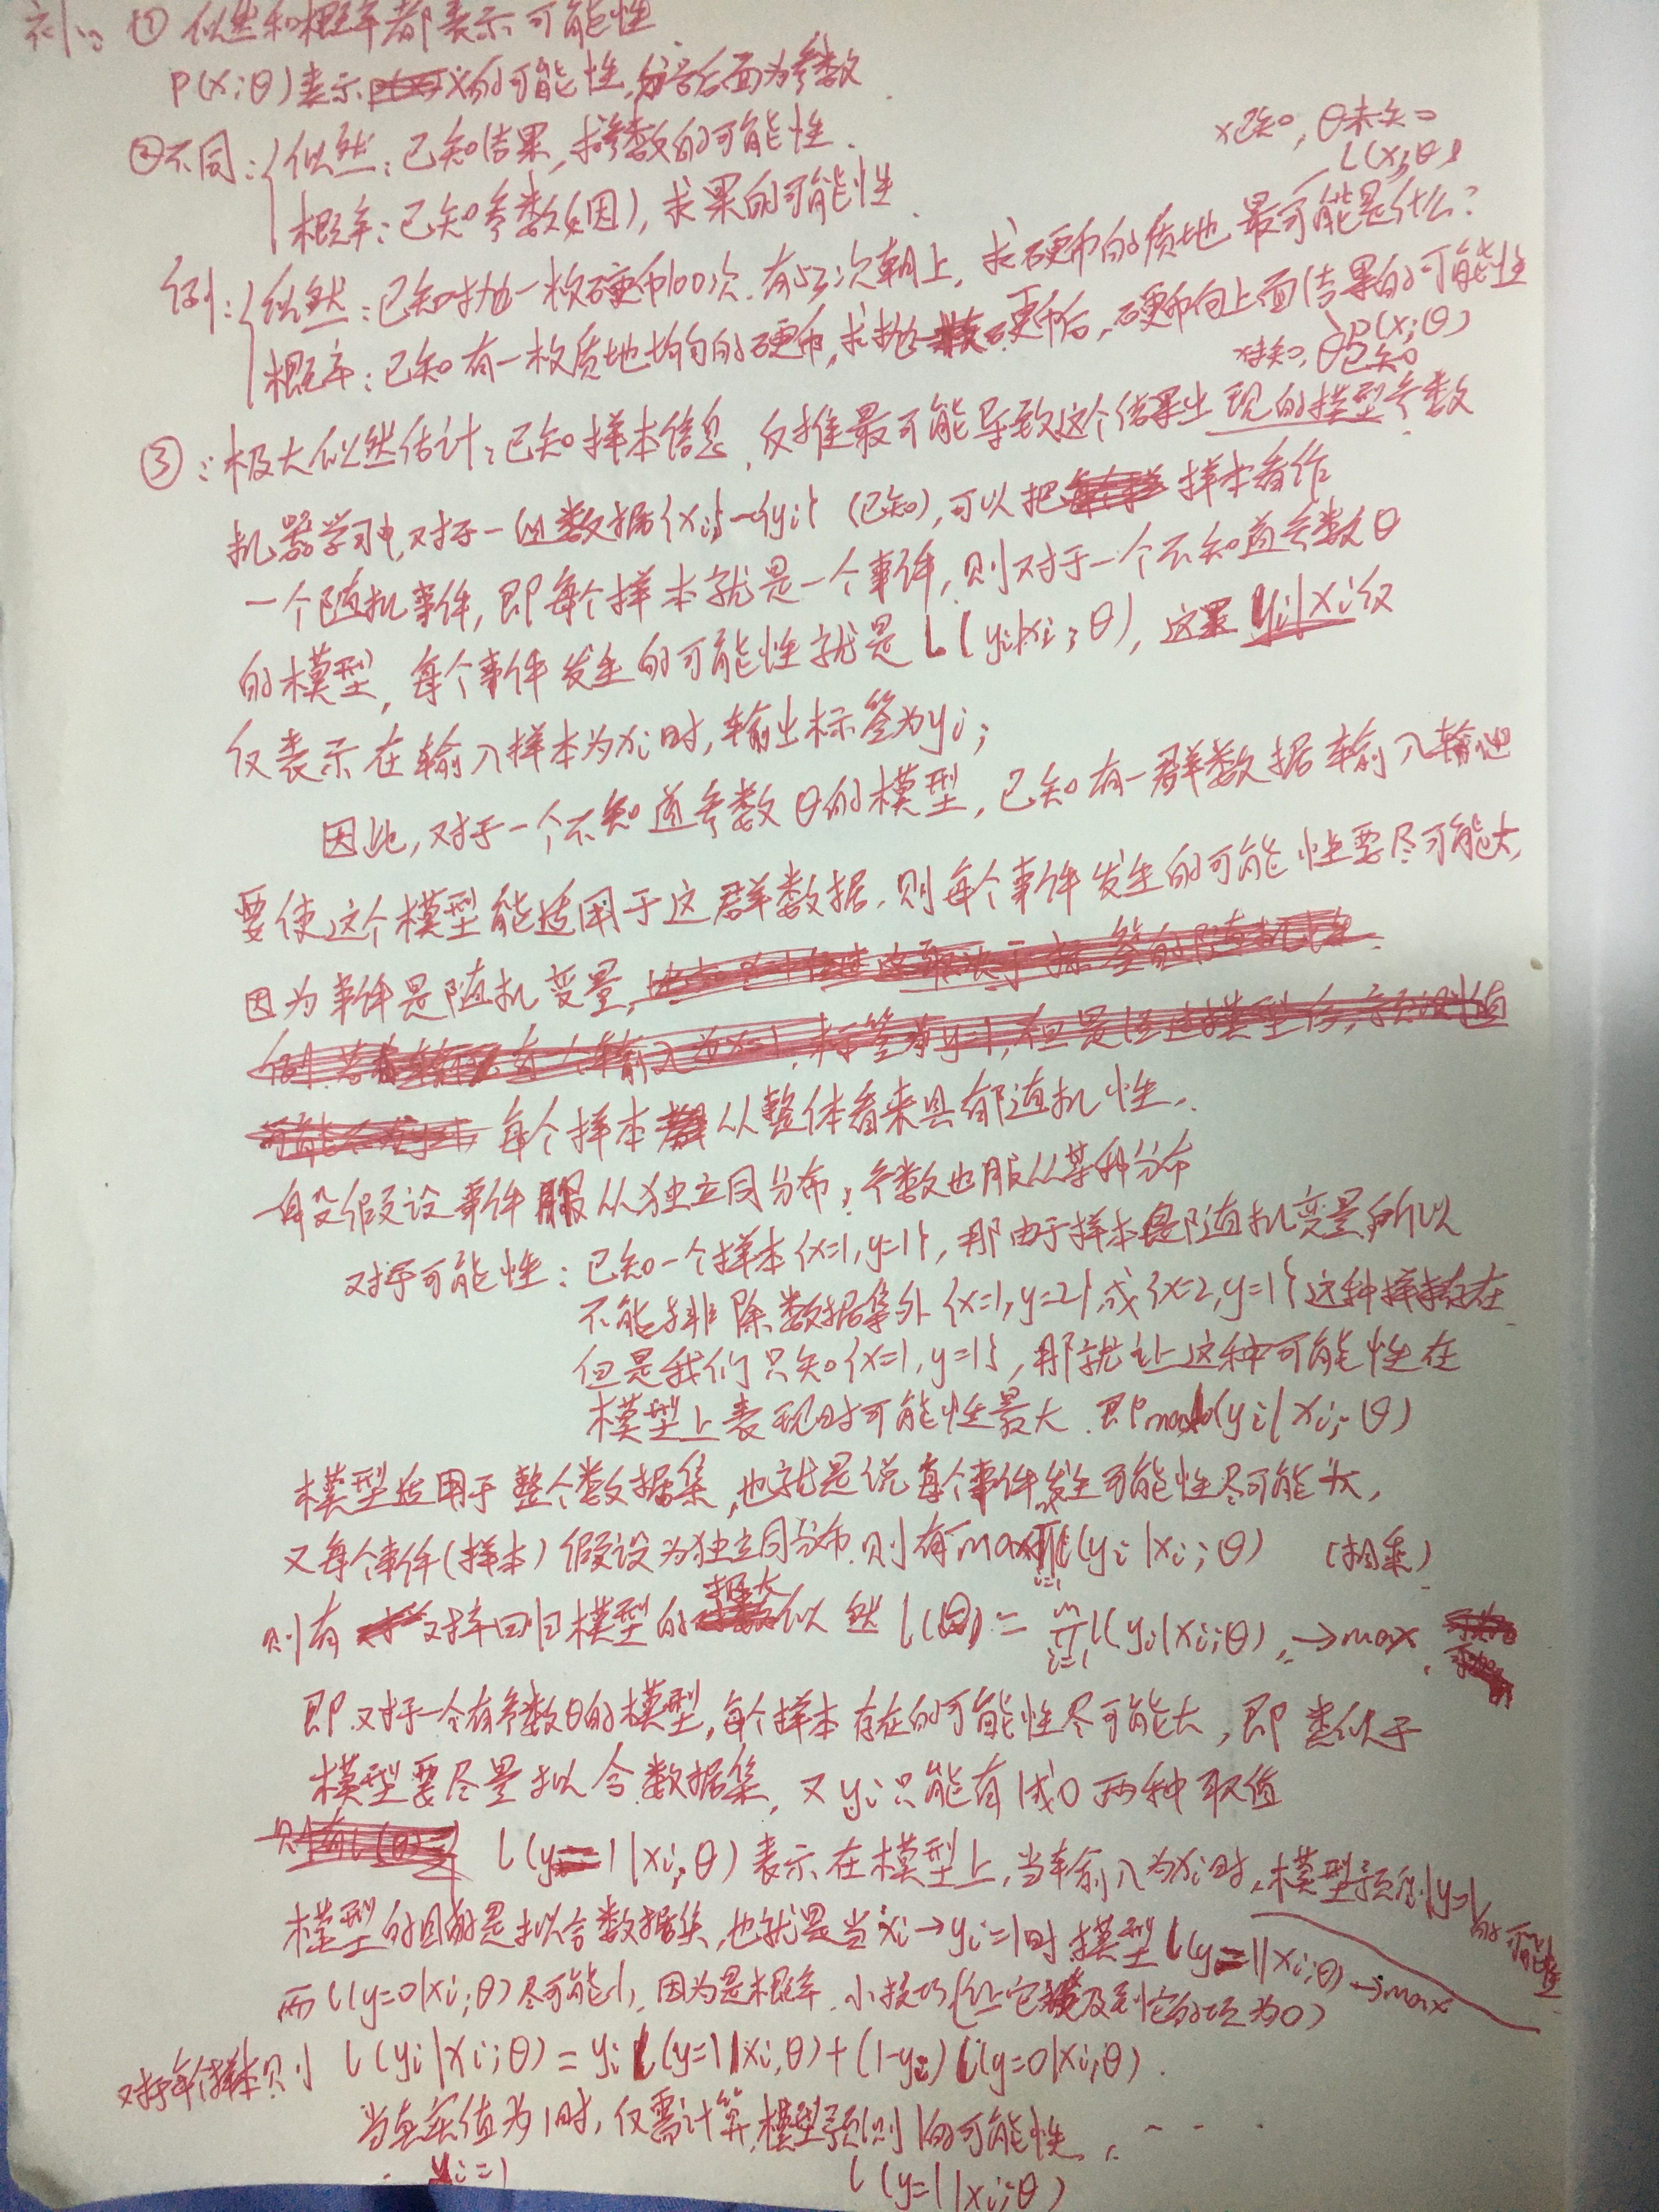 补: ① 似然和概率都表示可能性
P(x;θ)表示x的可能性,分号后面为参数
②不同:{似然:已知结果,求参数的可能性.
x已知,θ未知
L(x;θ)
概率:已知参数(因),求果的可能性.
例:{似然:已知抛一枚硬币100次.有53次朝上,求硬币的质地最可能是什么?
概率:已知有一枚质地均匀的硬币,求抛硬币后,硬币向上面结果的可能性
P(x;θ)
x未知,θ已知
③∴极大似然估计:已知样本信息,反推最可能导致这个结果出现的模型参数
机器学习中,对于一组数据{xi}—{yi}(已知),可以把样本看作
一个随机事件,即每个样本就是一个事件,则对于一个不知道参数θ
的模型,每个事件发生的可能性就是L(yi|xi;θ),这里yi|xi仅
仅表示在输入样本为xi时,输出标签为yi;
因此,对于一个不知道参数θ的模型,已知有一群数据输入输出
要使这个模型能适用于这群数据.则每个事件发生的可能性要尽可能大,
因为事件是随机变量,
每个样本从整体看来具有随机性.
一般假设事件服从独立同分布,参数也服从某种分布
对于可能性:已知一个样本{x=1,y=1},那由于样本是随机变量所以
不能排除数据集外{x=1,y=2}或{x=2,y=1}这种样本存在
但是我们只知{x=1,y=1},那就让这种可能性在
模型上表现时可能性最大.即maxL(yi|xi;θ)
模型适用于整个数据集,也就是说每个事件发生可能性尽可能大,
又每个事件(样本)假设为独立同分布.则有max∏L(yi|xi;θ) (相乘)
i=1
则有对率回归模型的似然L(θ)=∏L(yi|xi;θ),→max.
m
i=1
即对于一个有参数θ的模型,每个样本存在的可能性尽可能大,即类似于
模型要尽量拟合数据集,又yi只能有1或0两种取值
L(y=1|xi;θ)表示在模型上,当输入为xi时,模型预测y=1的可能性
模型的目的是拟合数据集,也就是当xi→yi=1时模型L(y=1|xi;θ)→max
而L(y=0|xi;θ)尽可能小,因为是概率.小技巧{让它涉及到它的项为0)
对于每个样本则L(yi|xi;θ)=yiL(y=1|xi,θ)+(1-yi)L(y=0|xi;θ).
当真实值为1时,仅需计算模型预测1的可能性,...
yi=1 L(y=1|xi;θ)